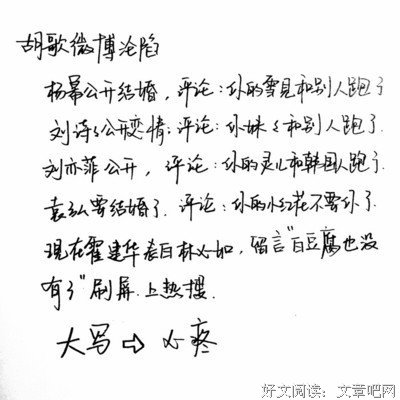 胡歌微博沦陷
杨幂公开结婚，评论：你的雪见和别人跑了
刘诗诗公开恋情；评论：你妹妹和别人跑了.
刘亦菲公开，评论：你的灵儿和韩国人跑了.
袁弘要结婚了，评论：你的小红花不要你了.
现在霍建华表白林心如，留言"白豆腐也没
有了"刷屏.上热搜.
大写⇨心疼
好文阅读：文章吧网